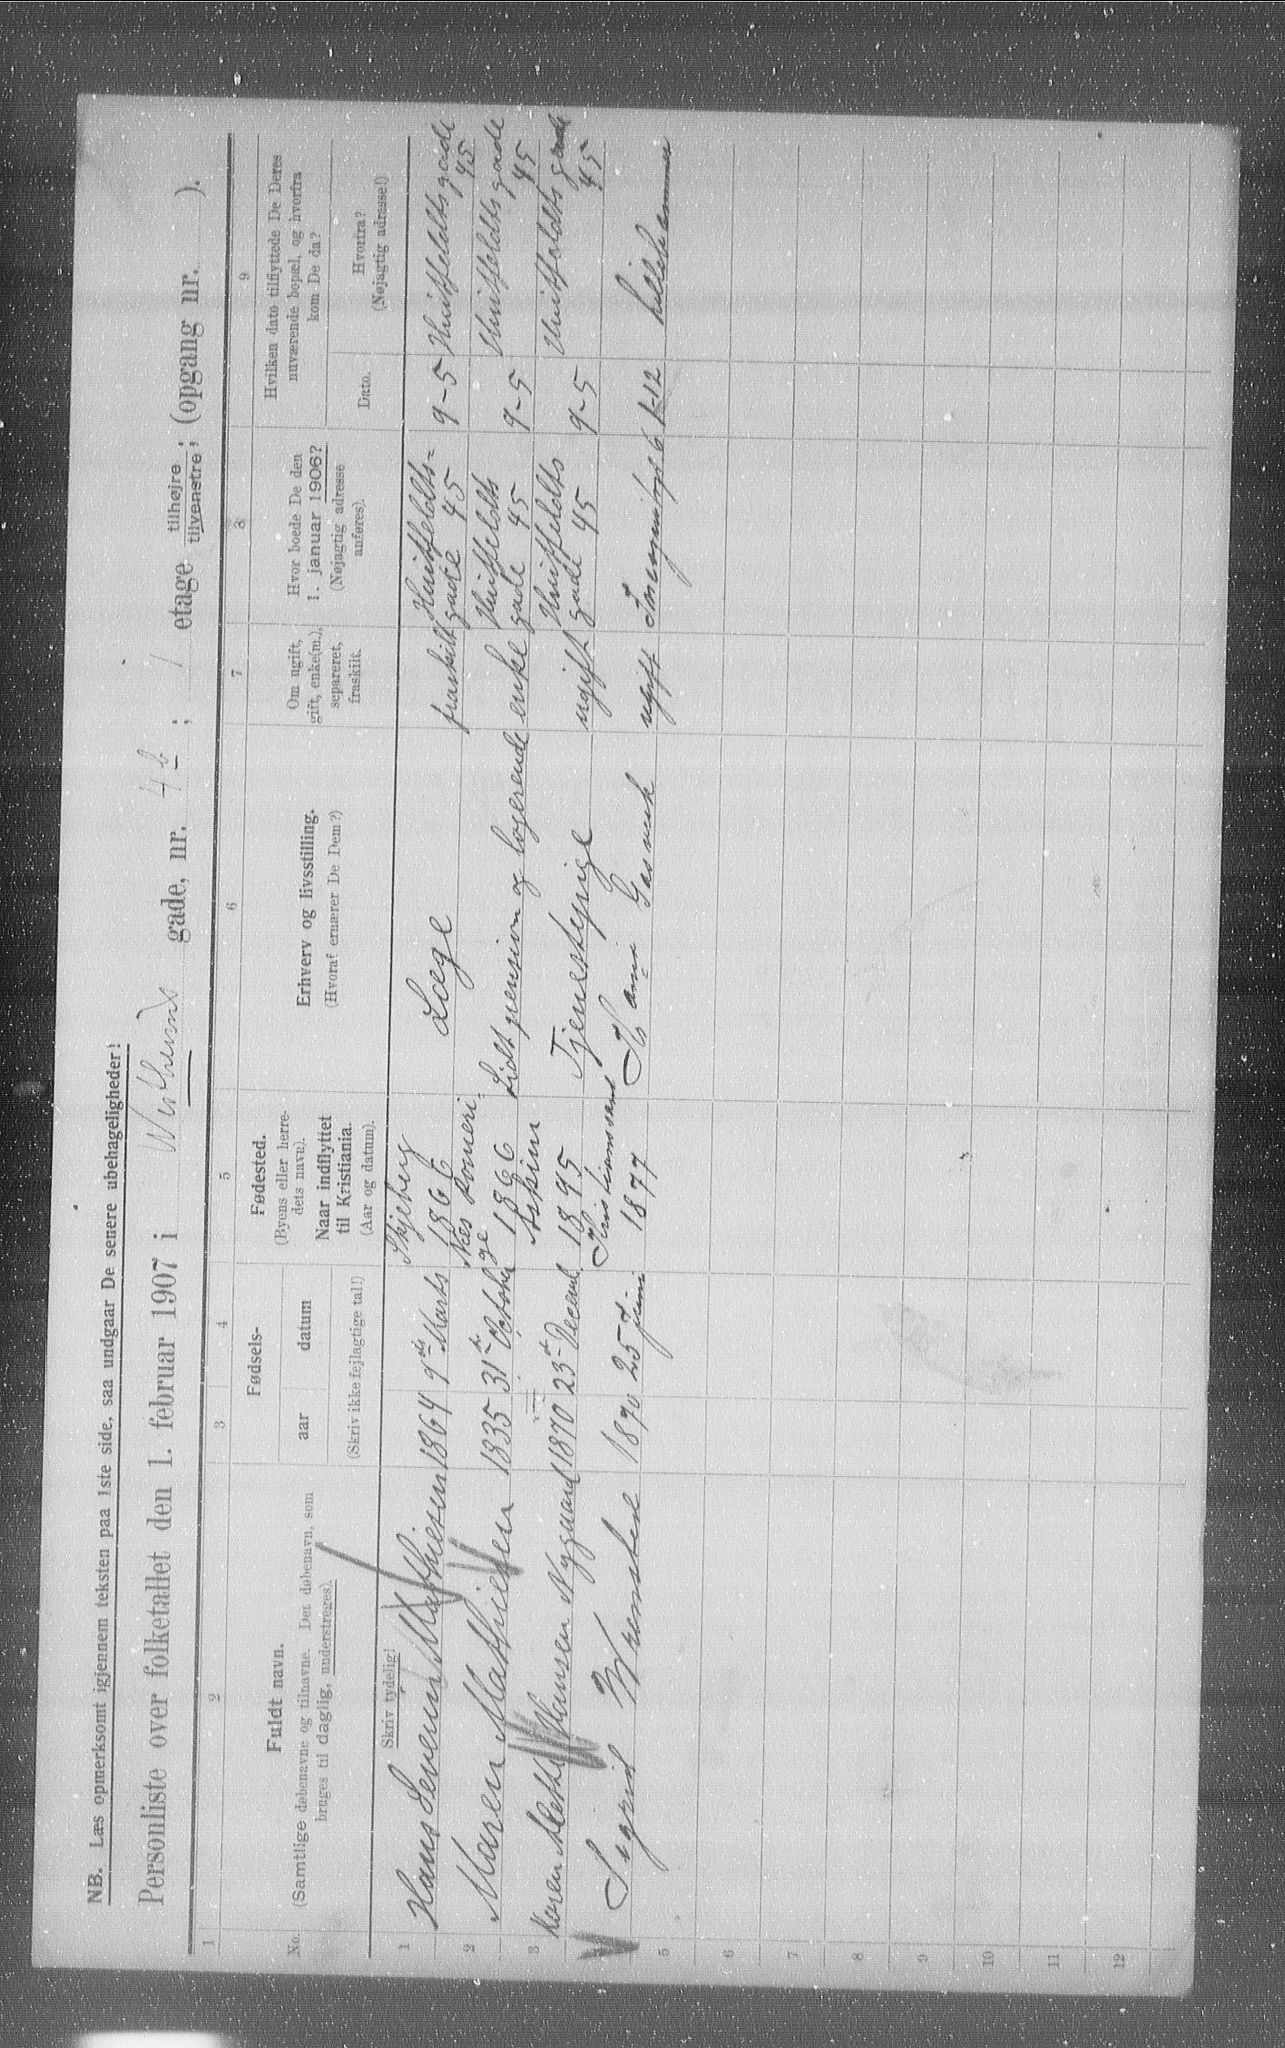 NB. Læs opmerksomt igjennem teksten paa 1ste side, saa undgaar De senere ubehageligheder!
Personliste over folketallet den 1. februar 1907 i gade, nr. 4 b ; 1 etage tilhøjre tilvenstre ; (opgang nr. ).
1 2 3 4 5 6 7 8 9
No.
Fuldt navn.
(Samtlige døbenavne og tilnavne. Det døbenavn, som
bruges til daglig, understreges).
Skriv tydelig!
Fødsels-
aar datum
(Skriv ikke fejlagtige tal!)
Fødested.
(Byens eller herre-
dets navn).
Naar indflyttet
til Kristiania.
(Aar og datum).
Erhverv og livsstilling.
(Hvoraf ernærer De Dem?)
Om ugift,
gift, enke(m.),
separeret,
fraskilt.
Hvor boede De den
1. januar 1906?
(Nøjagtig adresse
anføres).
Hvilken dato tilflyttede De Deres
nuværende bopæl, og hvorfra
kom De da?
Dato.
Hvorfra?
(Nøjagtig adresse!)
1 Hans Severin Mathiesen 1864 9de Marts Skjeberg 1866 Læge fraskilt Huitfeldts= gade 45 9-5 Huitfeldtsgade 45
2 Maren Mathiesen 1835 31te Octobr Nes Romeri- ge 1866 Lidt pension og logerende enke Huitfeldts gade 45 9-5 Huitfeldtsgade 45
3 Karen Mathe Hansen Nygaard 1870 23de Decemb. Askim 1895 Tjenestepige ugift Huitfeldts gade 45 9-5 Huitfeldtsgade 45
Sigrid 1870 25 Juni Kristianssand 1877 Gasverk ugift 6 1-12 Lillehammer
5
6
7
8
9
10
11
12